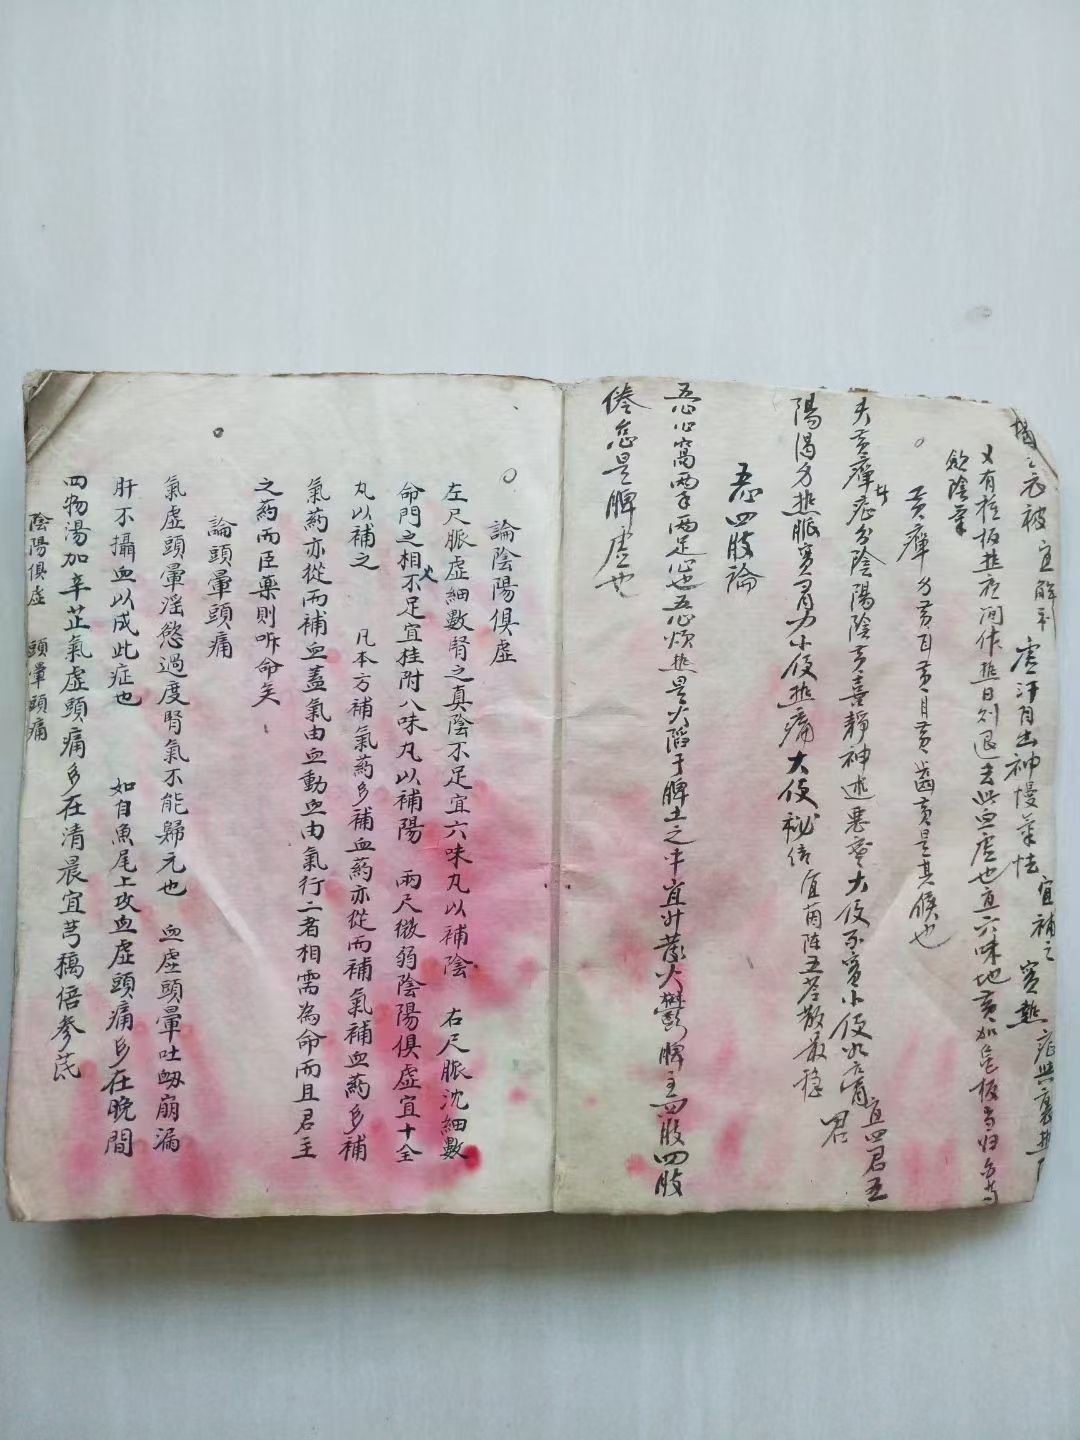 揭去衣被 宜解不 虛汗自出神慢氣怯 宜補之 實熱症與裏熱
又有夜間作熱日則退去此血虛也宜六味地黃加當归
飲陰
黃癉 黃耳黃目黃齒黃是其候也
夫黃癉症分陰陽陰黃喜靜神迷惡寒大便不實小便宜四君五
君
陽渴多熱脈實有力小便熱痛大便秘結宜茵陳五苓散最穩
五心四肢論
五心心窩兩手兩足心也五心煩熱是火陷于脾土之中宜升發火鬱脾主四肢四肢
倦怠是脾虛也
論陰陽俱虛
左尺脈虛細數腎之真陰不足宜六味丸以補陰 右尺脈沈細數
命門之相火不足宜桂附八味丸以補陽 兩尺微弱陰陽俱虛宜十全
丸以補之 凡本方補氣药多補血药亦從而補氣補血药多補
氣药亦從而補血蓋氣由血動血由氣行二者相需為命而且君主
之药而臣藥則听命矣
論頭暈頭痛
氣虛頭暈淫慾過度腎氣不能歸元也 血虛頭暈吐衂崩漏
肝不攝血以成此症也 如自魚尾上攻血虛頭痛多在晚間
四物湯加辛芷氣虛頭痛多在清晨宜芎藁倍參芪
陰陽俱虛 頭暈頭痛